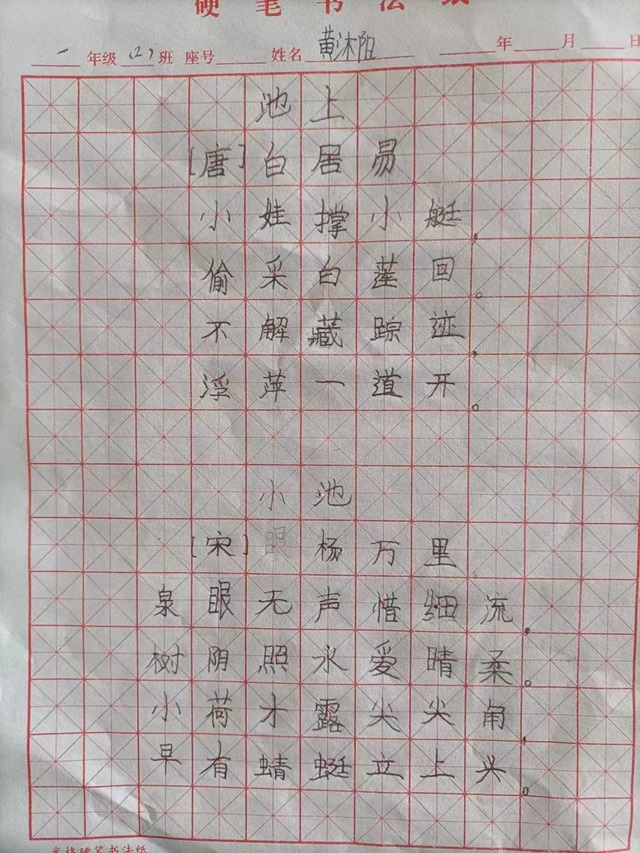 硬笔书法纸
一年级(2)班 座号 姓名黄沐阳 年 月 日
池上
[唐]白居易
小娃撑小艇，
偷采白莲回。
不解藏踪迹，
浮萍一道开。
小池
[宋]杨万里
泉眼无声惜细流，
树阴照水爱晴柔。
小荷才露尖尖角，
早有蜻蜓立上头。
米格硬笔书法纸